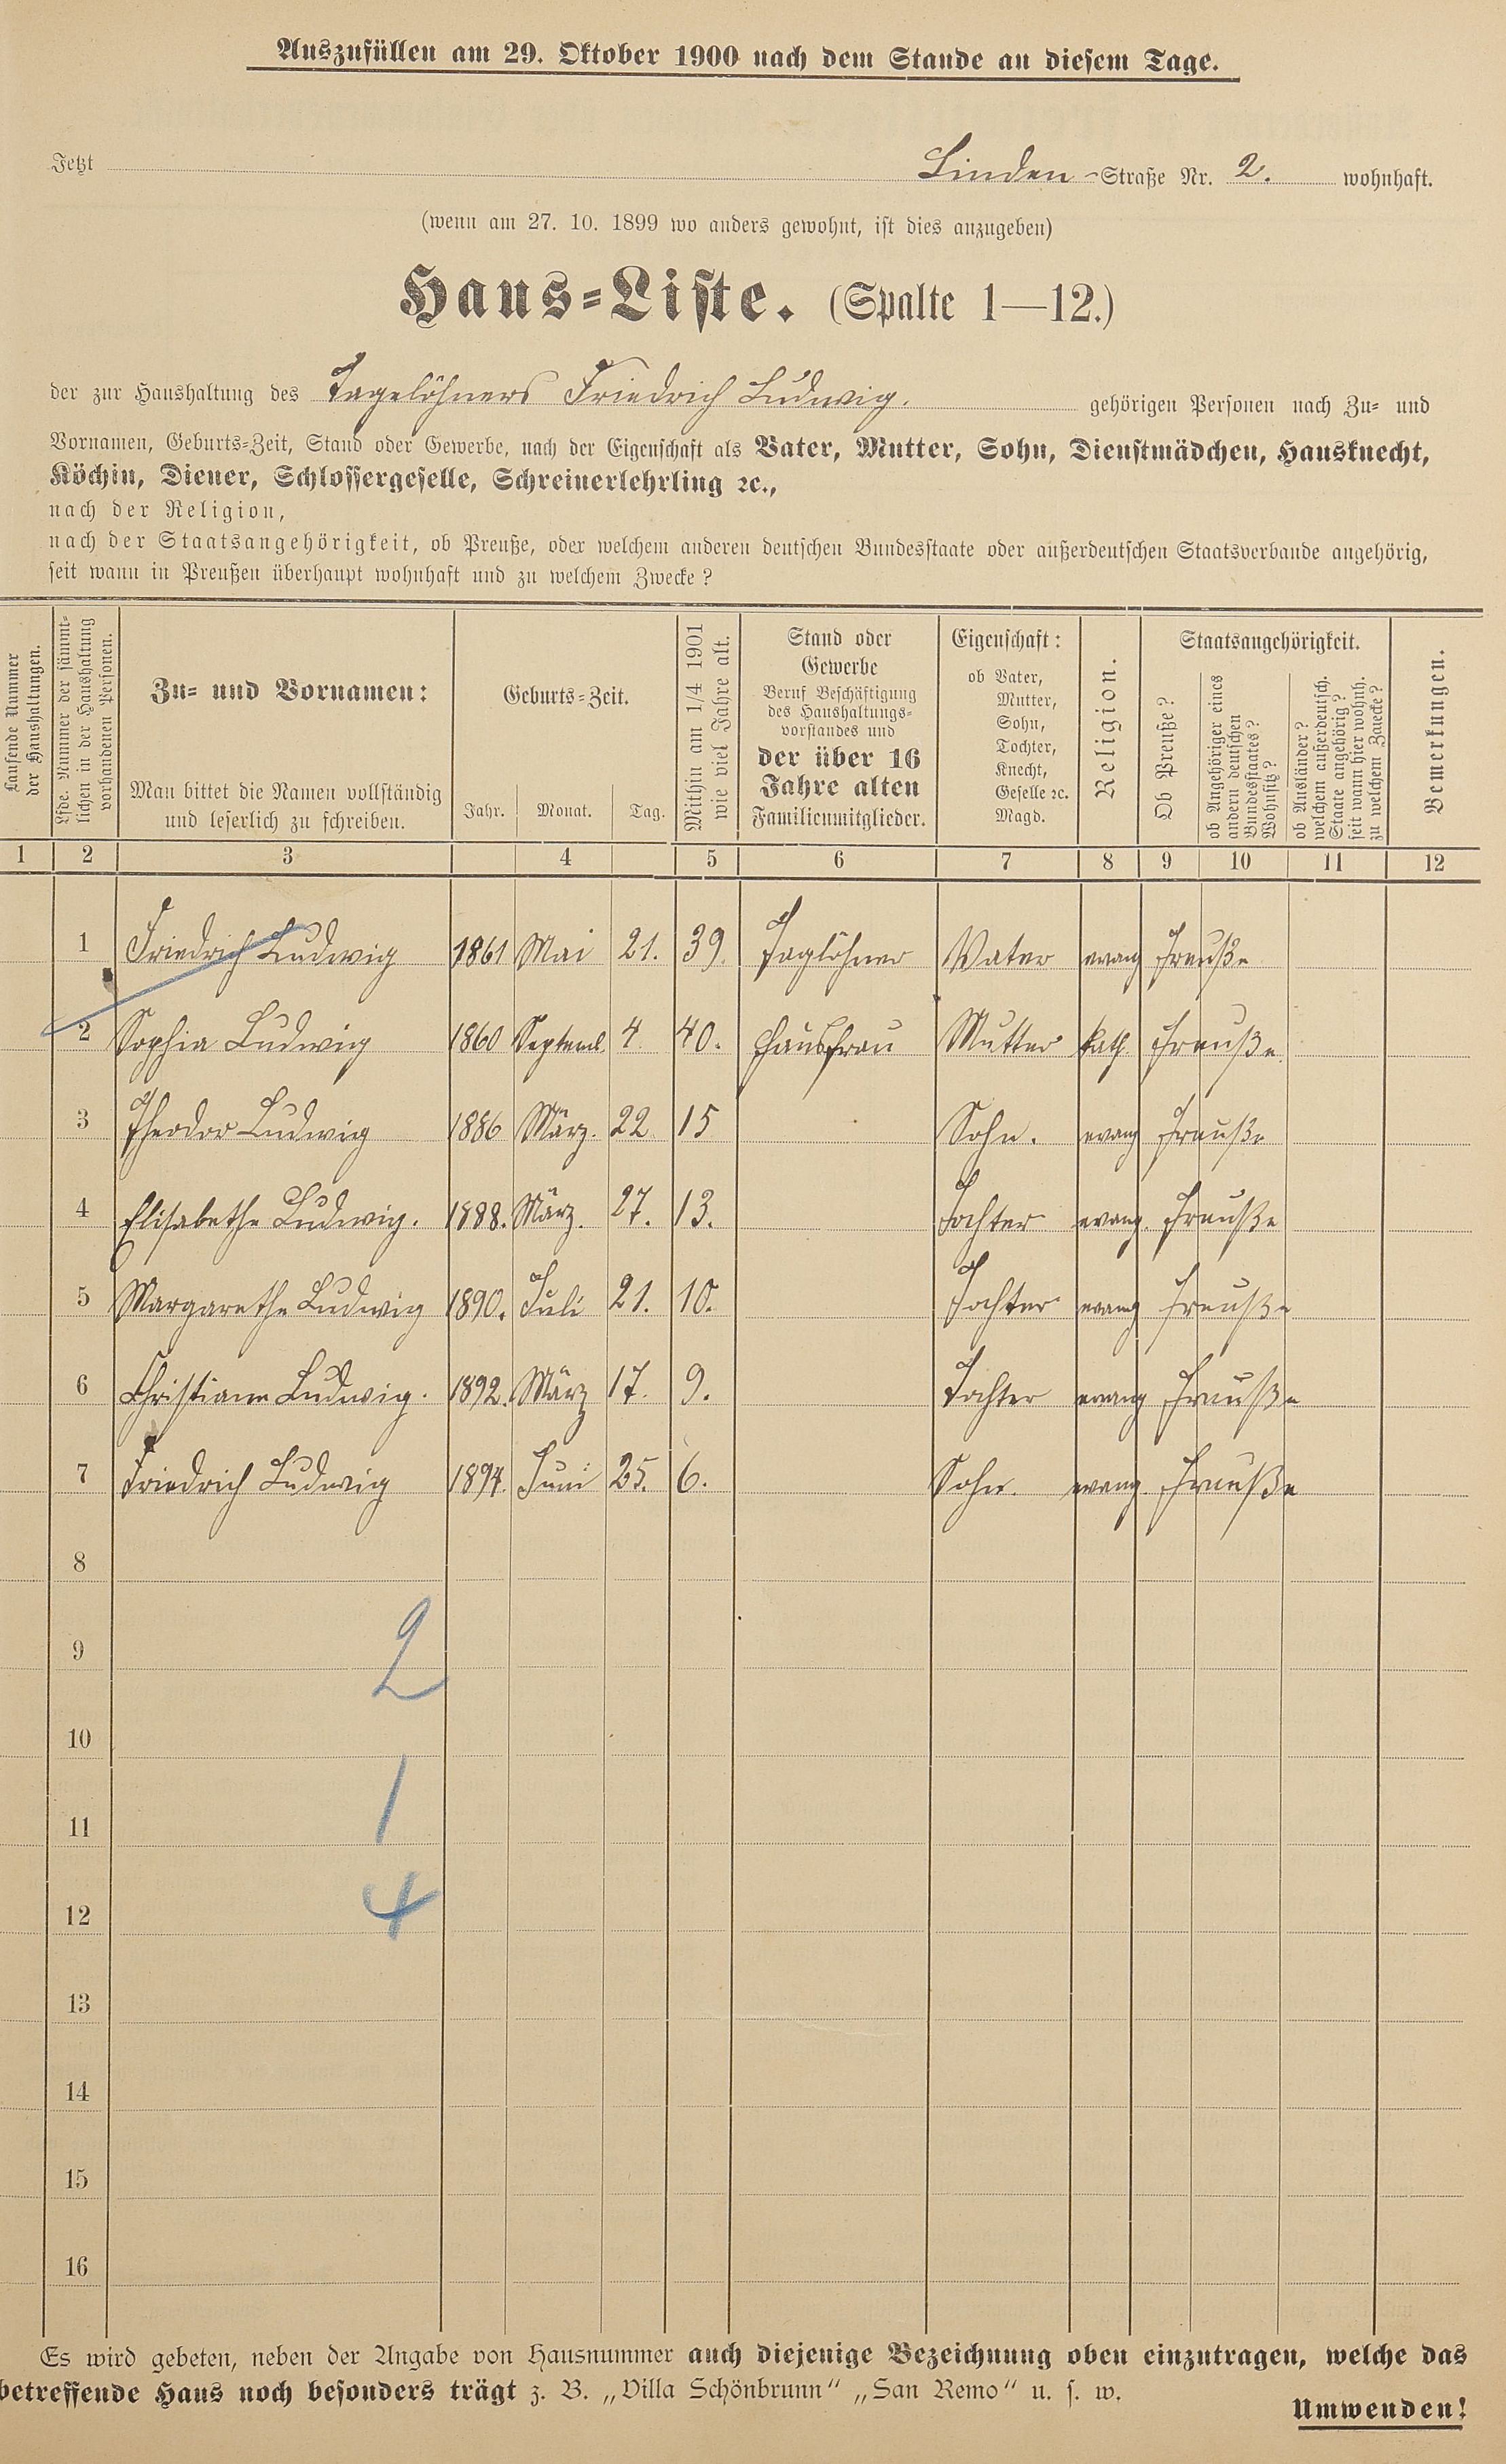 Auszufüllen am 29. Oktober 1900 nach dem Stande an diesem Tage.
Jetzt Linden-Straße Nr. 2. wohnhaft.
(wenn am 27. 10. 1899 wo anders gewohnt, ist dies anzugeben)
Haus-Liste. (Spalte 1—12.)
der zur Haushaltung des Tagelöhners Friedrich Ludwig. gehörigen Personen nach Zu- und
Vornamen, Geburts-Zeit, Stand oder Gewerbe, nach der Eigenschaft als Vater, Mutter, Sohn, Dienstmädchen, Hausknecht,
Köchin, Diener, Schlossergeselle, Schreinerlehrling ꝛc.,
nach der Religion,
nach der Staatsangehörigkeit, ob Preuße, oder welchem anderen deutschen Bundesstaate oder außerdeutschen Staatsverbande angehörig,
seit wann in Preußen überhaupt wohnhaft und zu welchem Zwecke?
Laufende Nummer
der Haushaltungen.
Lfde. Nummer der sämmt-
lichen in der Haushaltung
vorhandenen Personen.
Zu- und Vornamen:
Man bittet die Namen vollständig
und leserlich zu schreiben.
Geburts-Zeit.
Jahr. Monat. Tag.
Mithin am 1/4 1901
wie viel Jahre alt.
Stand oder
Gewerbe
Beruf Beschäftigung
des Haushaltungs-
vorstandes und
der über 16
Jahre alten
Familienmitglieder.
Eigenschaft:
ob Vater,
Mutter,
Sohn,
Tochter,
Knecht,
Geselle ꝛc.
Magd.
Religion.
Staatsangehörigkeit.
Ob Preuße?
ob Angehöriger eines
andern deutschen
Bundesstaates?
Wohnsitz?
ob Ausländer?
welchem außerdeutsch.
Staate angehörig?
seit wann hier wohnh.
zu welchem Zwecke?
Bemerkungen.
1 2 3 4 5 6 7 8 9 10 11 12
1 Friedrich Ludwig 1861 Mai 21. 39. Taglöhner Vater evang Preuße
2 Sophia Ludwig 1860 Septemb. 4. 40. Hausfrau Mutter kath. Preuße
3 Theodor Ludwig 1886 März. 22 15 Sohn. evang Preuße
4 Elisabethe Ludwig. 1888. März. 27. 13. Tochter evang. Preuße
5 Margarethe Ludwig 1890. Juli 21. 10. Tochter evang Preuße
6 Christiane Ludwig. 1892. März 17. 9. Tochter evang Preuße
7 Friedrich Ludwig 1894. Juni 25. 6. Sohn. evang Preuße
8
9 2
10
11 1
12 4
13
14
15
16
Es wird gebeten, neben der Angabe von Hausnummer auch diejenige Bezeichnung oben einzutragen, welche das
betreffende Haus noch besonders trägt z. B. „Villa Schönbrunn“ „San Remo“ u. s. w.
Umwenden!